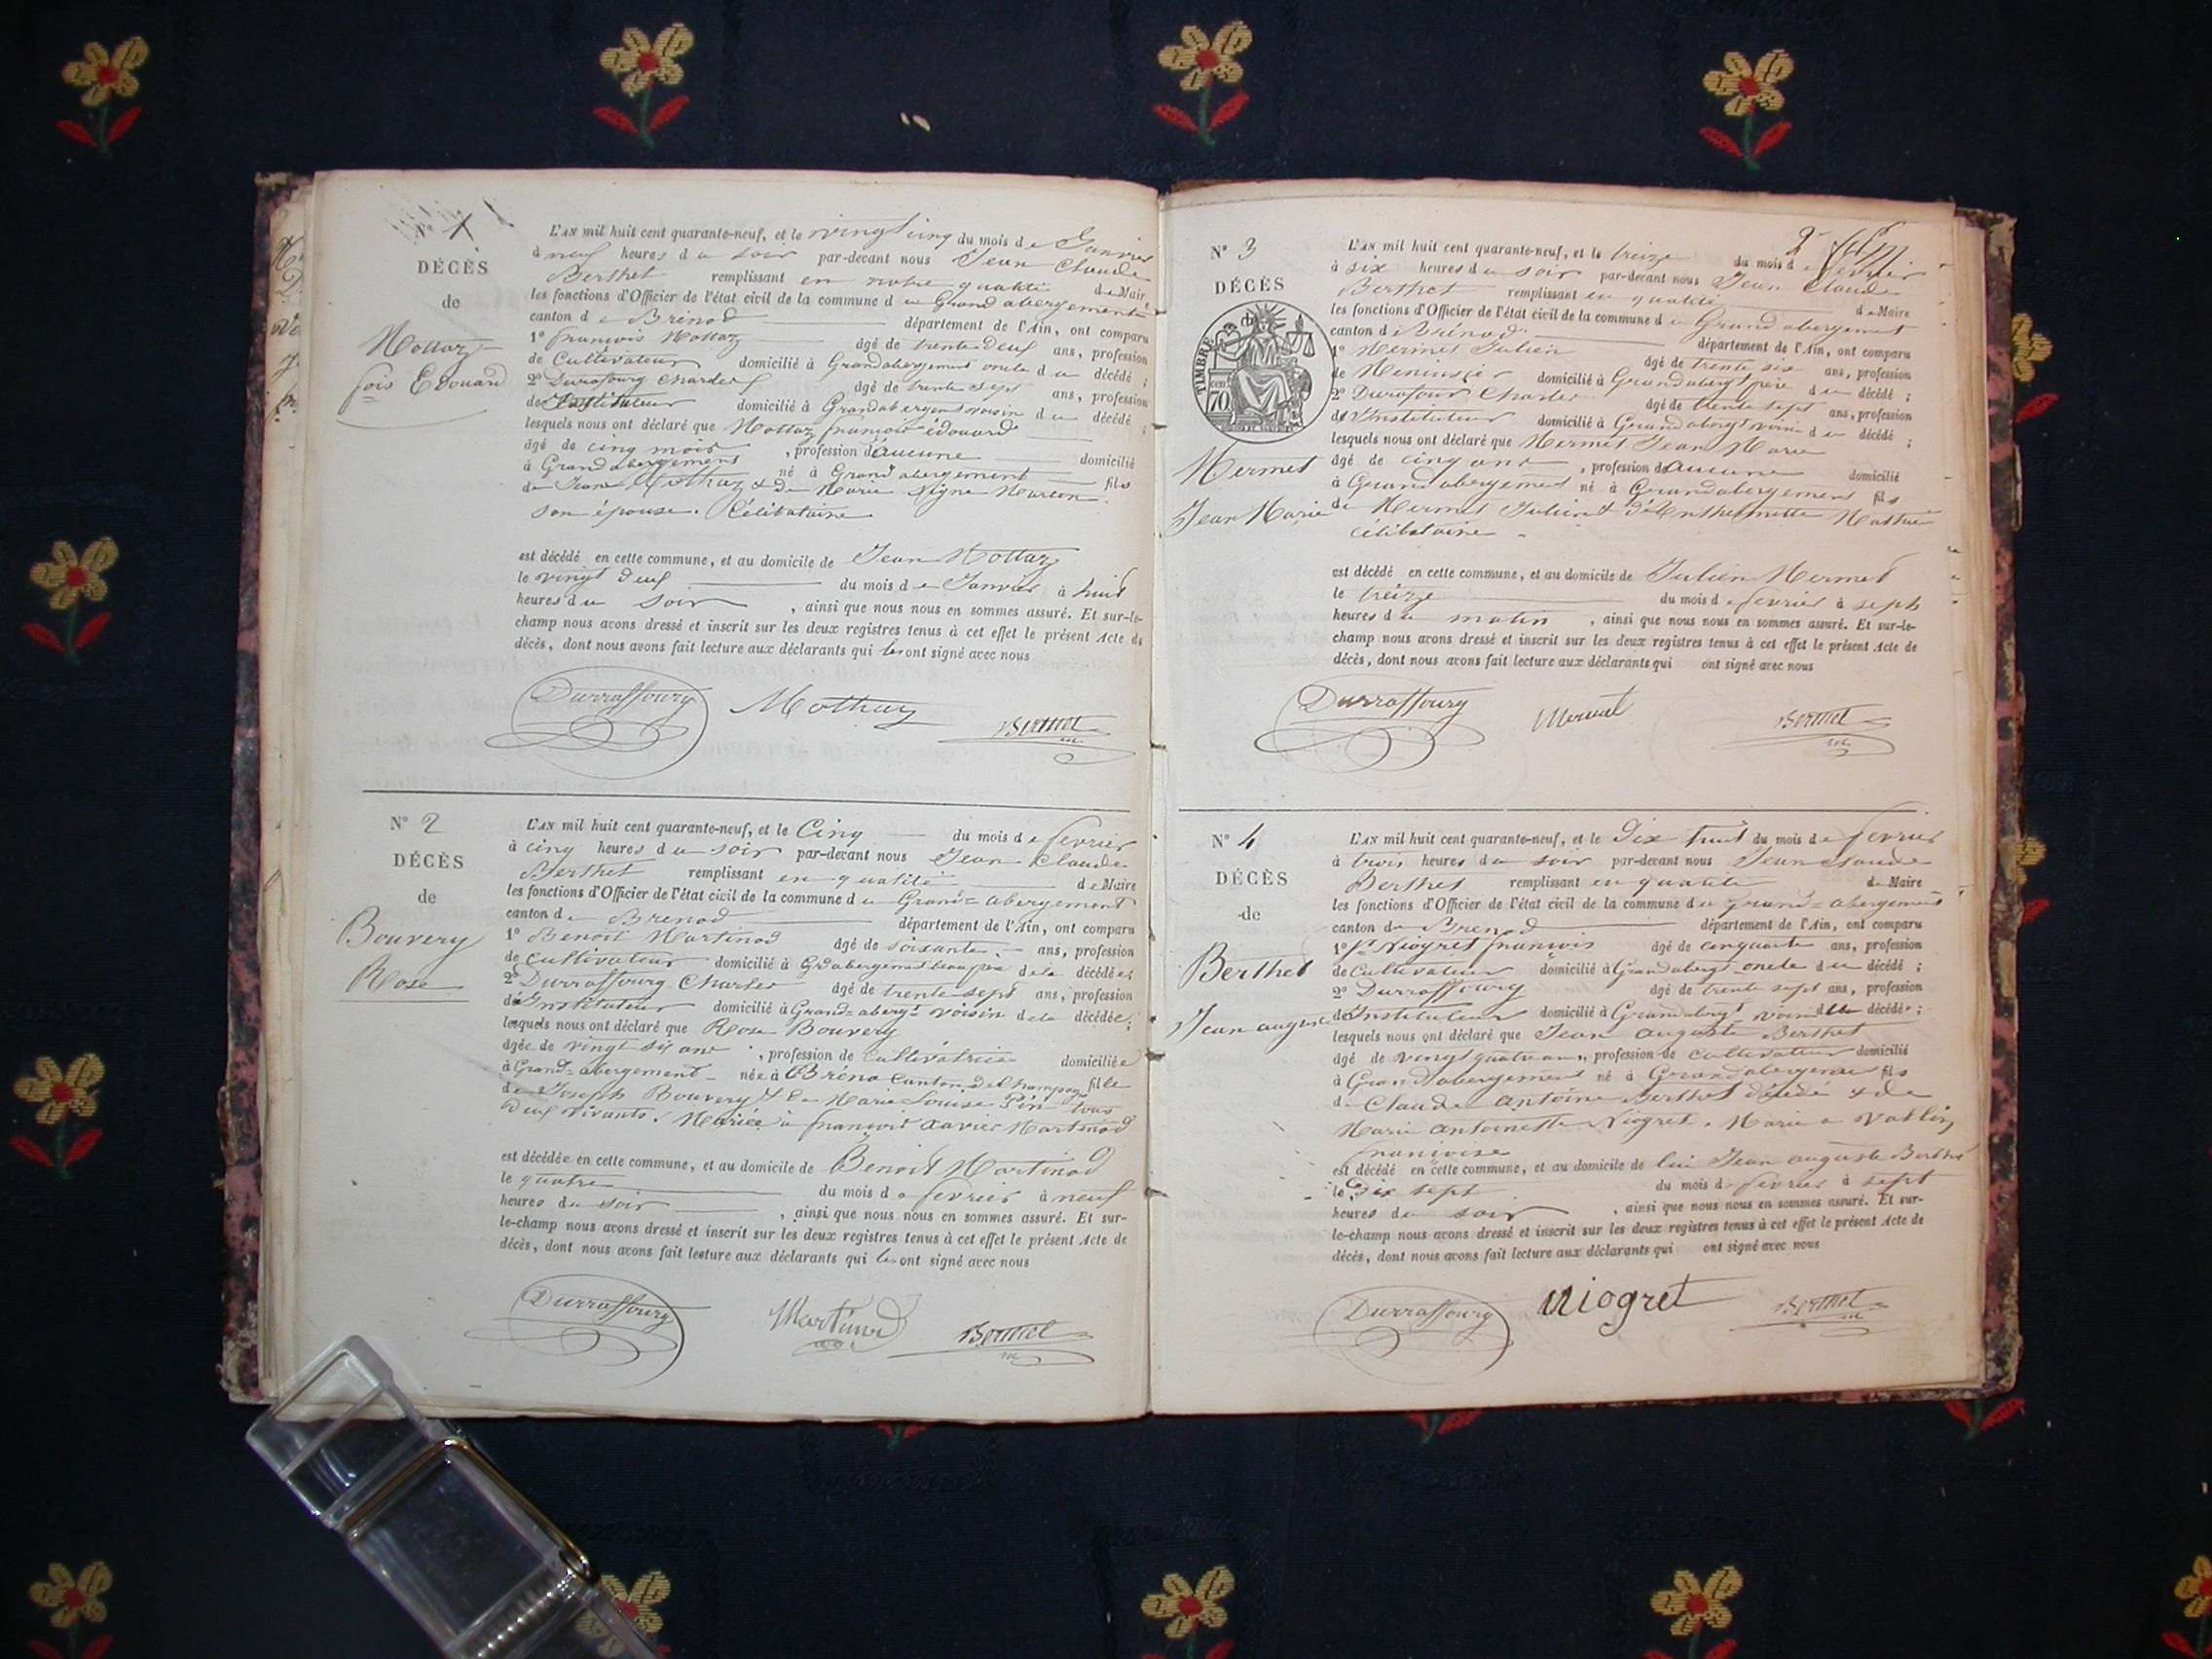 N° 1
DÉCÈS
de
Mottaz
fois Edouard
L'AN mil huit cent quarante-neuf, et le vingt cinq du mois de Janvier
à neuf heures du soir par-devant nous Jean Claude
Berthet remplissant en notre qualité de Maire
les fonctions d'Officier de l'état civil de la commune du Grand abergement
canton de Brénod département de l'Ain, ont comparu
1° François Mottaz âgé de trente deux ans, profession
de Cultivateur domicilié à Grandabergement oncle du décédé ;
2° Durafourg Charles âgé de trente sept ans, profession
de Instituteur domicilié à Grandabergemt voisin du décédé ;
lesquels nous ont déclaré que Mottaz françois édouard
âgé de cinq mois , profession d'aucune domicilié
à Grandabergement né à Grand abergement fils
de Jean Mothaz & de Marie
son épouse. Célibataire
est décédé en cette commune, et au domicile de Jean Mottaz
le vingt deux du mois de Janvier à huit
heures du soir , ainsi que nous nous en sommes assuré. Et sur-le-
champ nous avons dressé et inscrit sur les deux registres tenus à cet effet le présent Acte de
décès, dont nous avons fait lecture aux déclarants qui les ont signé avec nous
Durraffourg Mothaz Berthet
N° 2
DÉCÈS
de
Bouvery
Rose
L'AN mil huit cent quarante-neuf, et le Cinq du mois de fevrier
à cinq heures du soir par-devant nous Jean Claude
Berthet remplissant en qualité de Maire
les fonctions d'Officier de l'état civil de la commune du Grand=abergement
canton de Brenod département de l'Ain, ont comparu
1° Benoit Martinod âgé de soixante ans, profession
de cultivateur domicilié à Gdabergement beau père de la décédée ;
2° Durraffourg Charles âgé de trente sept ans, profession
d'Instituteur domicilié à Grand=abergt voisin de la décédée ;
lesquels nous ont déclaré que Rose Bouvery
âgée de vingt six ans , profession de cultivatrice domiciliée
à Grand=abergement née à Bréno Canton de Champagne fille
de Joseph Bouvery & de Marie Louise Pin tous
deux vivants. Mariée à françois Xavier Martinod
est décédée en cette commune, et au domicile de Benoit Martinod
le quatre du mois de fevrier à neuf
heures du soir , ainsi que nous nous en sommes assuré. Et sur-
le-champ nous avons dressé et inscrit sur les deux registres tenus à cet effet le présent Acte de
décès, dont nous avons fait lecture aux déclarants qui les ont signé avec nous
Durraffourg Martinod Berthet
2e
N° 3
DÉCÈS
TIMBRE
cen. 70
Mermet
Jean Marie
L'AN mil huit cent quarante-neuf, et le treize du mois de fevrier
à six heures du soir par-devant nous Jean Claude
Berthet remplissant en qualité de Maire
les fonctions d'Officier de l'état civil de la commune du Grand abergement
canton de Brénod département de l'Ain, ont comparu
1° Mermet Julien âgé de trente six ans, profession
de Menuisier domicilié à Grandabergt père du décédé ;
2° Durafour Charles âgé de trente sept ans, profession
d'Instituteur domicilié à Grandabergt voisin du décédé ;
lesquels nous ont déclaré que Mermet Jean Marie
âgé de cinq ans , profession d'aucune domicilié
à Grand abergement né à Grandabergement fils
de Mermet Julien & d'Anthelmette Mathieu
célibataire
est décédé en cette commune, et au domicile de Julien Mermet
le treize du mois de fevrier à sept
heures du matin , ainsi que nous nous en sommes assuré. Et sur-le-
champ nous avons dressé et inscrit sur les deux registres tenus à cet effet le présent Acte de
décès, dont nous avons fait lecture aux déclarants qui ont signé avec nous
Durraffourg Mermet Berthet
N° 4
DÉCÈS
de
Berthet
Jean auguste
L'AN mil huit cent quarante-neuf, et le Dix huit du mois de fevrier
à trois heures du soir par-devant nous Jean Claude
Berthet remplissant en qualité de Maire
les fonctions d'Officier de l'état civil de la commune du Grand=abergement
canton de Brenod département de l'Ain, ont comparu
1° Niogret françois âgé de cinquante ans, profession
de Cultivateur domicilié à Grandabergt oncle du décédé ;
2° Durraffourg âgé de trente sept ans, profession
d'Instituteur domicilié à Grandabergt voisin du décédé ;
lesquels nous ont déclaré que Jean auguste Berthet
âgé de vingt quatre ans, profession de cultivateur domicilié
à Grandabergement né à Grandabergement fils
de Claude Antoine Berthet décédé & de
Marie Antoinette Niogret. Marié a Vallin
françoise
est décédé en cette commune, et au domicile de lui Jean auguste Berthet
le Dix sept du mois de fevrier à sept
heures du soir , ainsi que nous nous en sommes assuré. Et sur-
le-champ nous avons dressé et inscrit sur les deux registres tenus à cet effet le présent Acte de
décès, dont nous avons fait lecture aux déclarants qui ont signé avec nous
Durraffourg Niogret Berthet